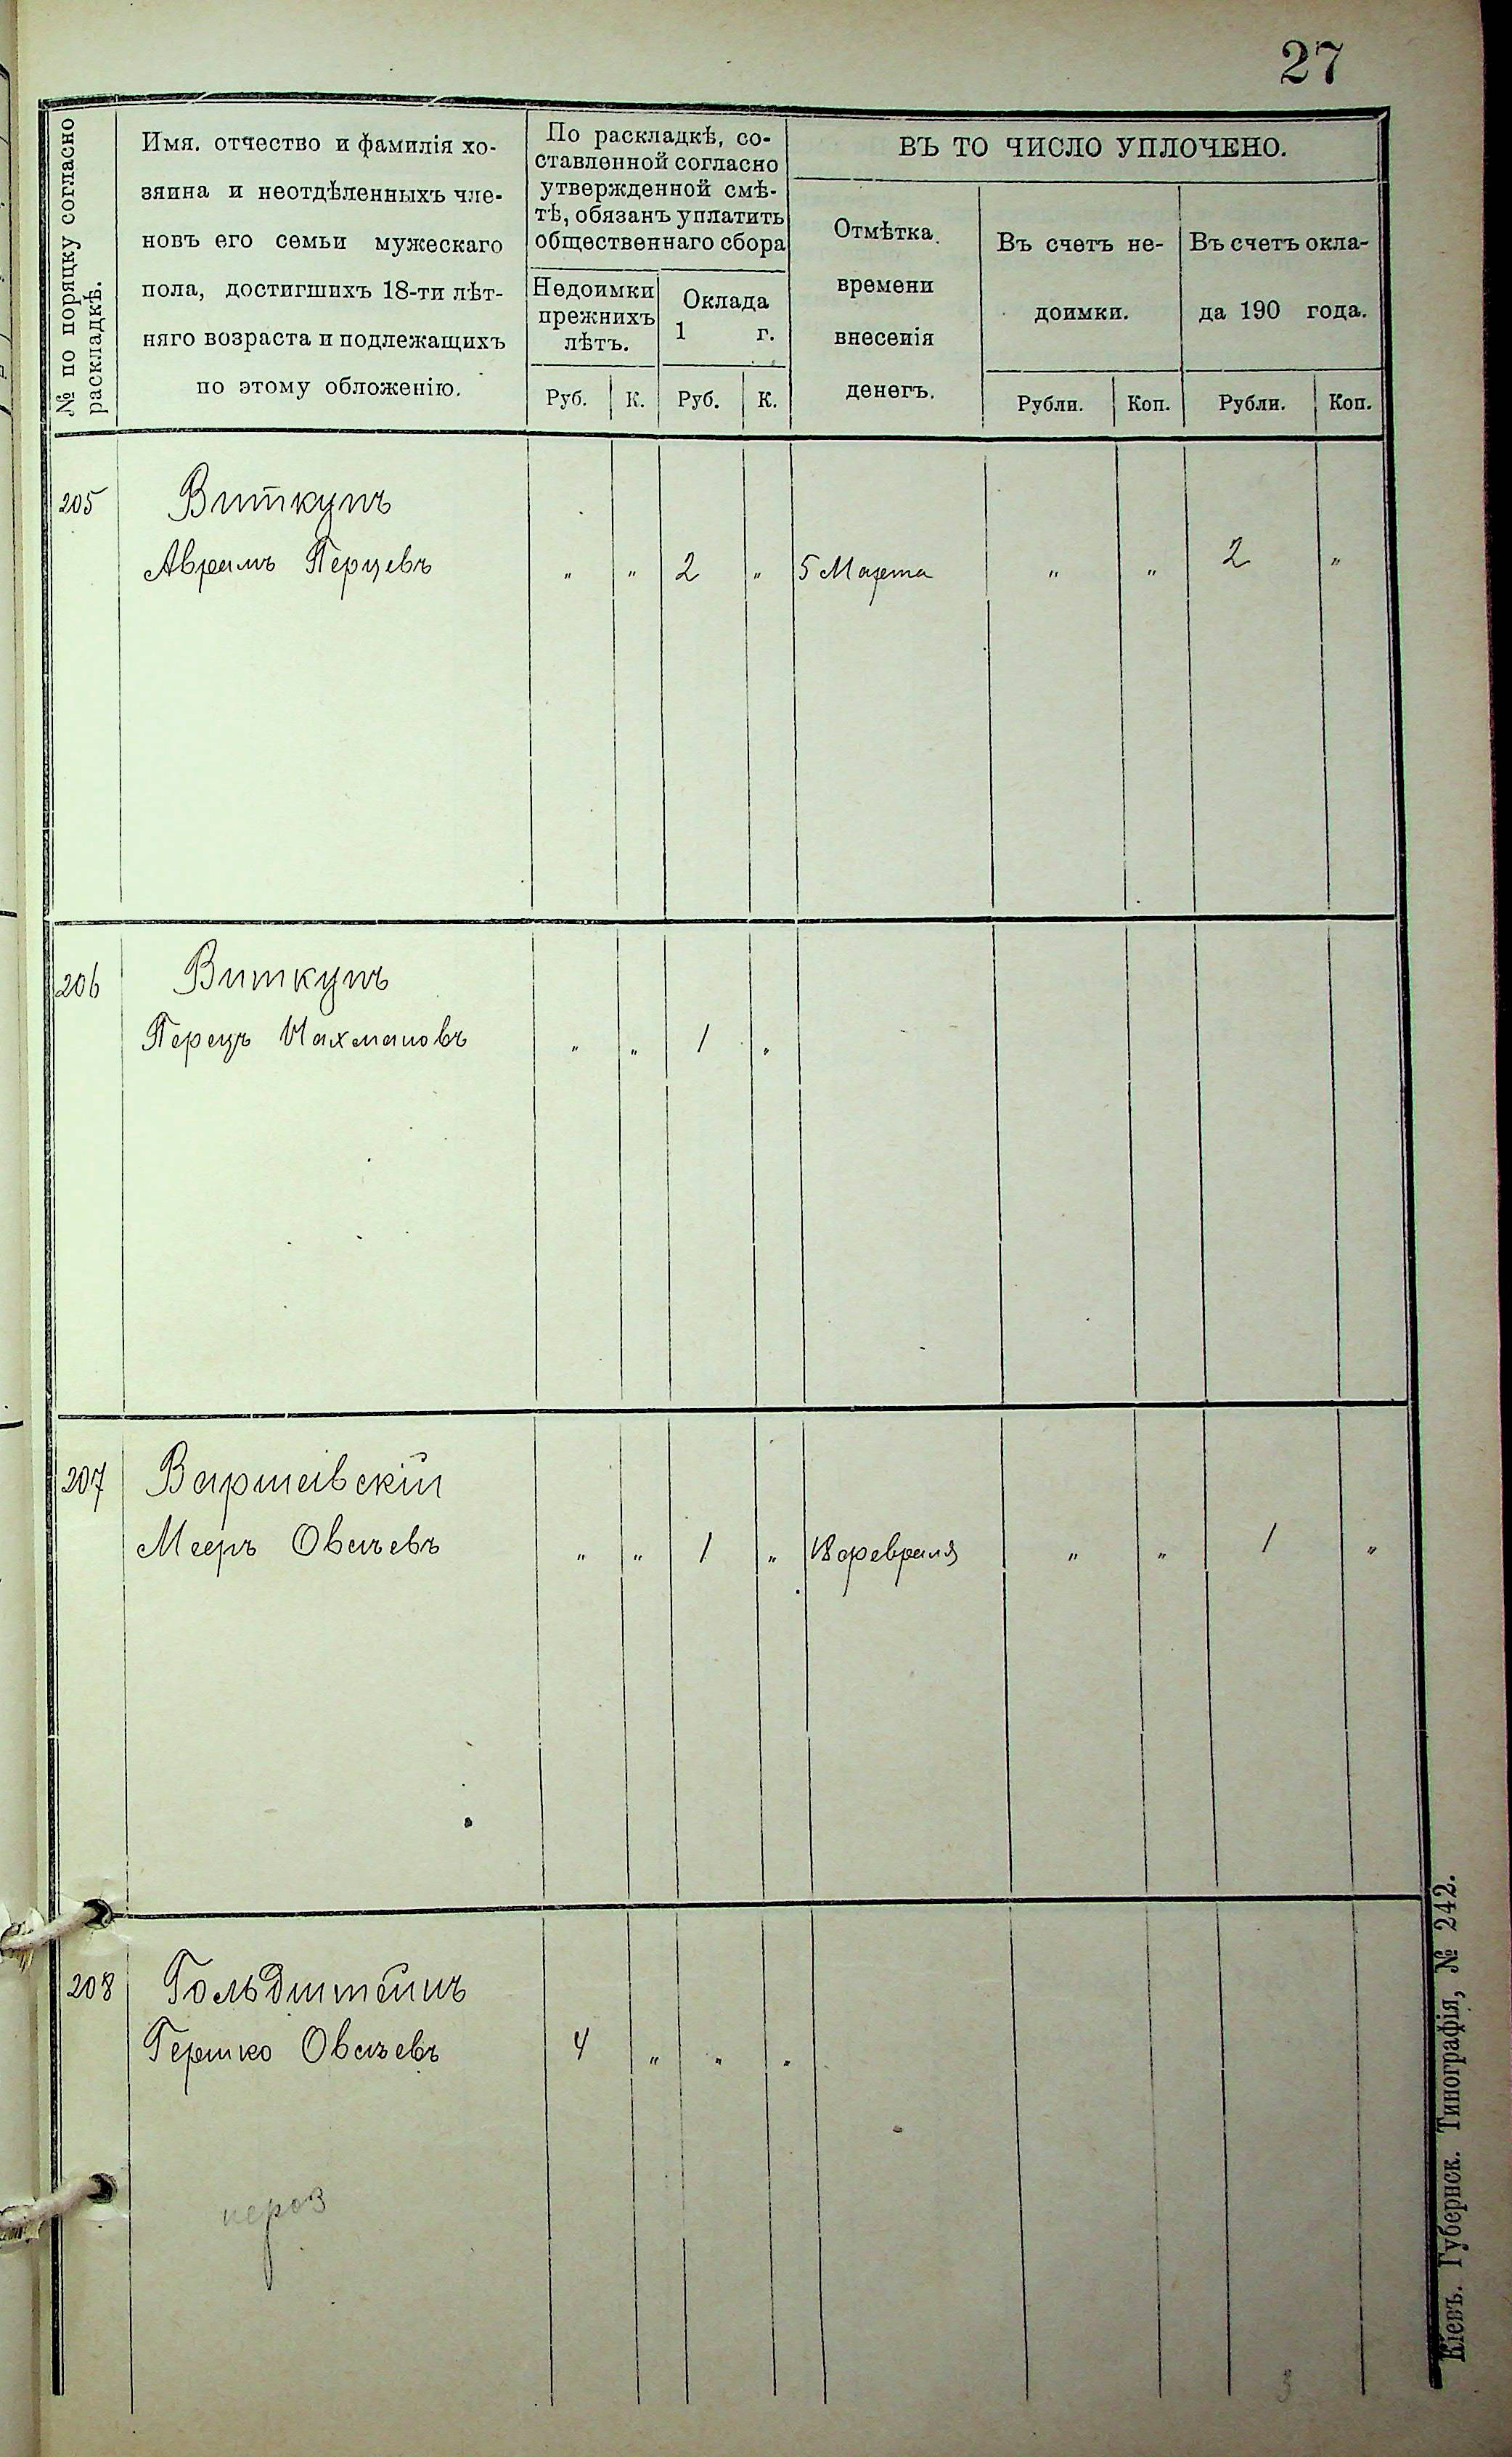 27
№ по поряцку согласно
раскладкѣ.
Имя. отчество и фамилія хо-
зяина и неотдѣленныхъ чле-
новъ его семьи мужескаго
пола, достигшихъ 18-ти лѣт-
няго возраста и подлежащихъ
по этому обложенію.
По раскладкѣ, со-
ставленной согласно
утвержденной смѣ-
тѣ, обязанъ уплатить
общественнаго сбора
Недоимки
прежнихъ
лѣтъ.
Оклада
1 г.
Руб. К. Руб. К.
ВЪ ТО ЧИСЛО УПЛОЧЕНО.
Отмѣтка
времени
внесенія
денегъ.
Въ счетъ не-
доимки.
Въ счетъ окла-
да 190 года.
Рубли. Коп. Рубли. Коп.
205 Виткупъ
Аврамъ Перцевъ " " 2 " 5 Марта " " 2 "
206 Виткупъ
Перецъ Нахмановъ " " 1 "
207 Варшавскій
Мееръ Овсѣевъ " " 1 " 18 февраля " " 1 "
208 Гольдштейнъ
Гершко Овсѣевъ 4 " " "
3
Кіевъ. Губернск. Типографія, № 242.